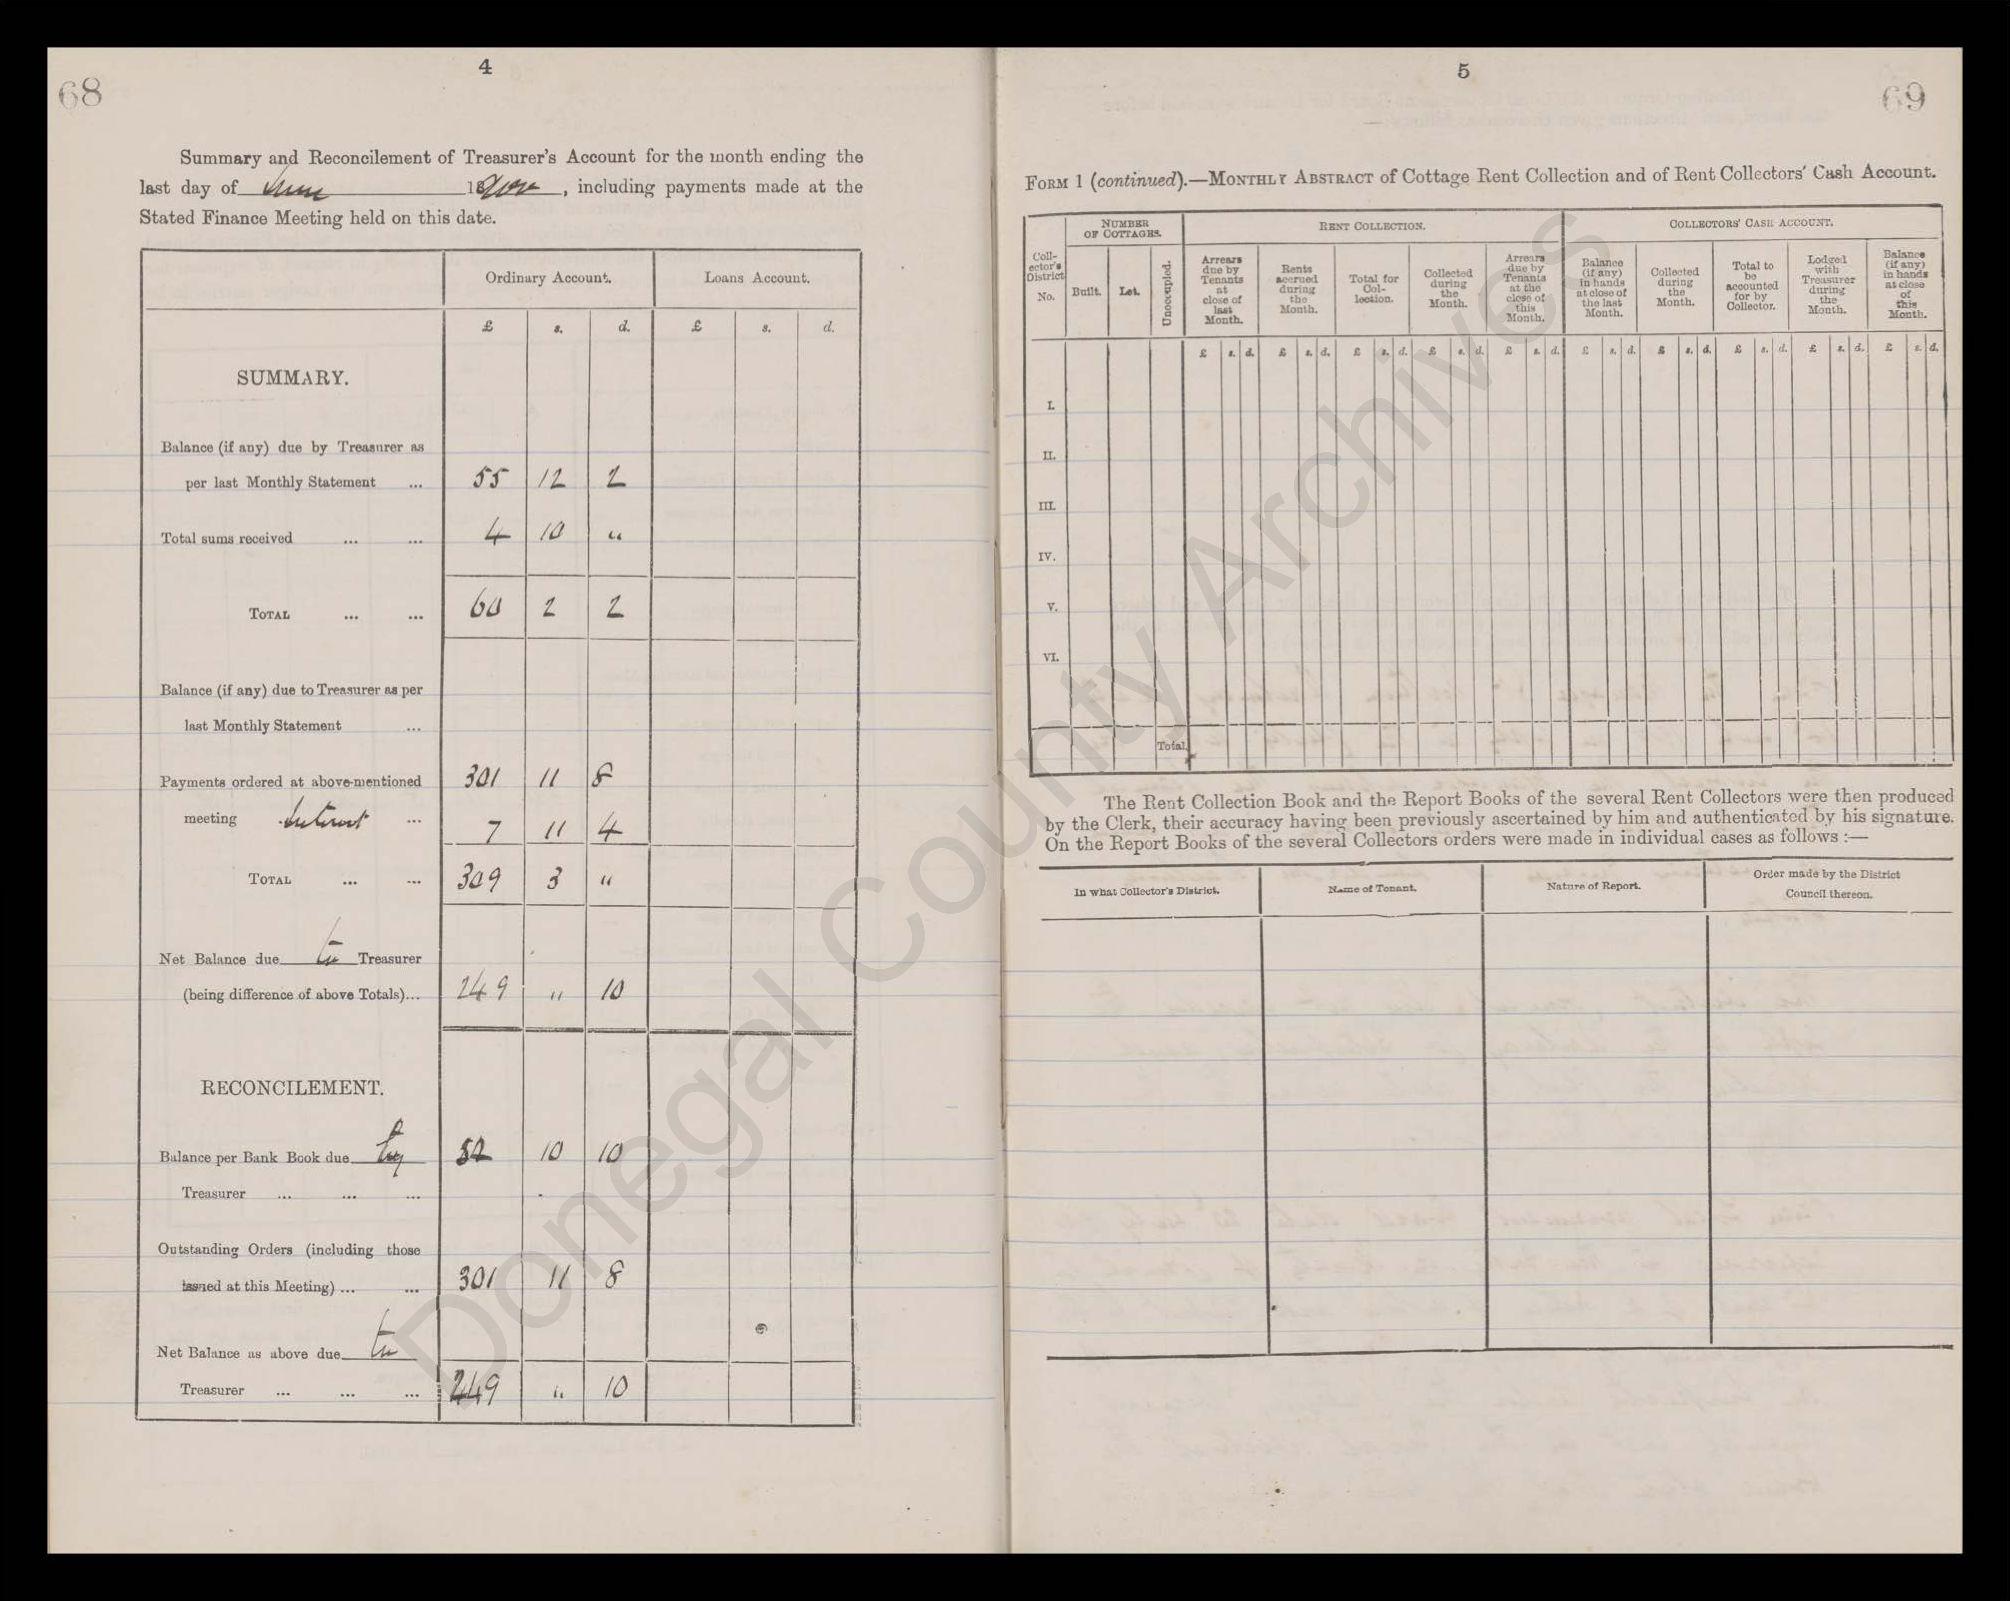 4
68
Summary and Reconcilement of Treasurer's Account for the month ending the
last day of June 18, including payments made at the
Stated Finance Meeting held on this date.
Ordinary Account. Loans Account.
£ s. d. £ s. d.
SUMMARY.
Balance (if any) due by Treasurer as
per last Monthly Statement ... 55 12 2
Total sums received ... ... 4 10 "
TOTAL ... ... 60 2 2
Balance (if any) due to Treasurer as per
last Monthly Statement ...
Payments ordered at above-mentioned 301 11 8
meeting Interest ... 7 11 4
TOTAL ... ... 309 3 "
Net Balance due to Treasurer
(being difference of above Totals)... 249 " 10
RECONCILEMENT.
Balance per Bank Book due by 52 10 10
Treasurer ... ... ...
Outstanding Orders (including those
issued at this Meeting) ... ... 301 11 8
Net Balance as above due to
Treasurer ... ... ... 249 " 10
5
69
FORM 1 (continued).—MONTHLY ABSTRACT of Cottage Rent Collection and of Rent Collectors' Cash Account.
Coll-
ector's
District
No.
NUMBER
OF COTTAGES.
Built. Let. Unoccupied.
RENT COLLECTION.
Arrears
due by
Tenants
at
close of
last
Month.
Rents
accrued
during
the
Month.
Total for
Col-
lection.
Collected
during
the
Month.
Arrears
due by
Tenants
at the
close of
this
Month.
COLLECTORS' CASH ACCOUNT.
Balance
(if any)
in hands
at close of
the last
Month.
Collected
during
the
Month.
Total to
be
accounted
for by
Collector.
Lodged
with
Treasurer
during
the
Month.
Balance
(if any)
in hands
at close
of
this
Month.
£ s. d. £ s. d. £ s. d. £ s. d. £ s. d. £ s. d. £ s. d. £ s. d. £ s. d. £ s. d.
I.
II.
III.
IV.
V.
VI.
Total.
The Rent Collection Book and the Report Books of the several Rent Collectors were then produced
by the Clerk, their accuracy having been previously ascertained by him and authenticated by his signature.
On the Report Books of the several Collectors orders were made in individual cases as follows :—
In what Collector's District. Name of Tenant. Nature of Report. Order made by the District
Council thereon.
Donegal County Archives